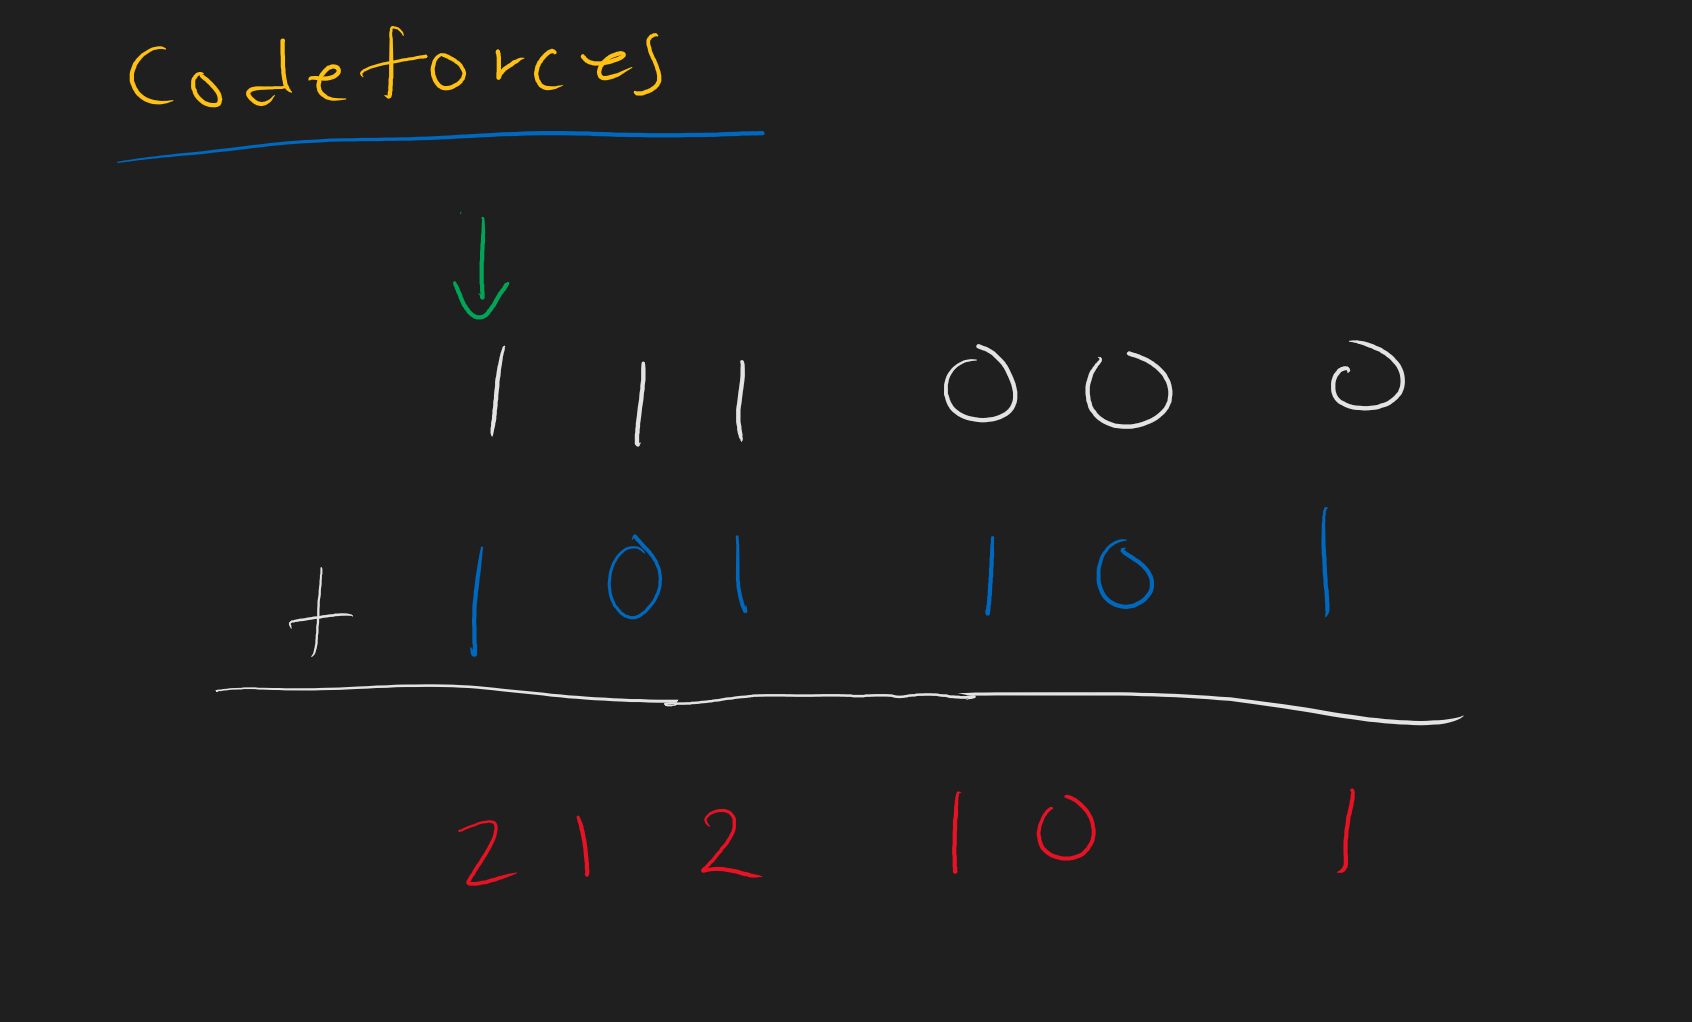 Codeforces
1 1 1 0 0 0
+ 1 0 1 1 0 1
2 1 2 1 0 1